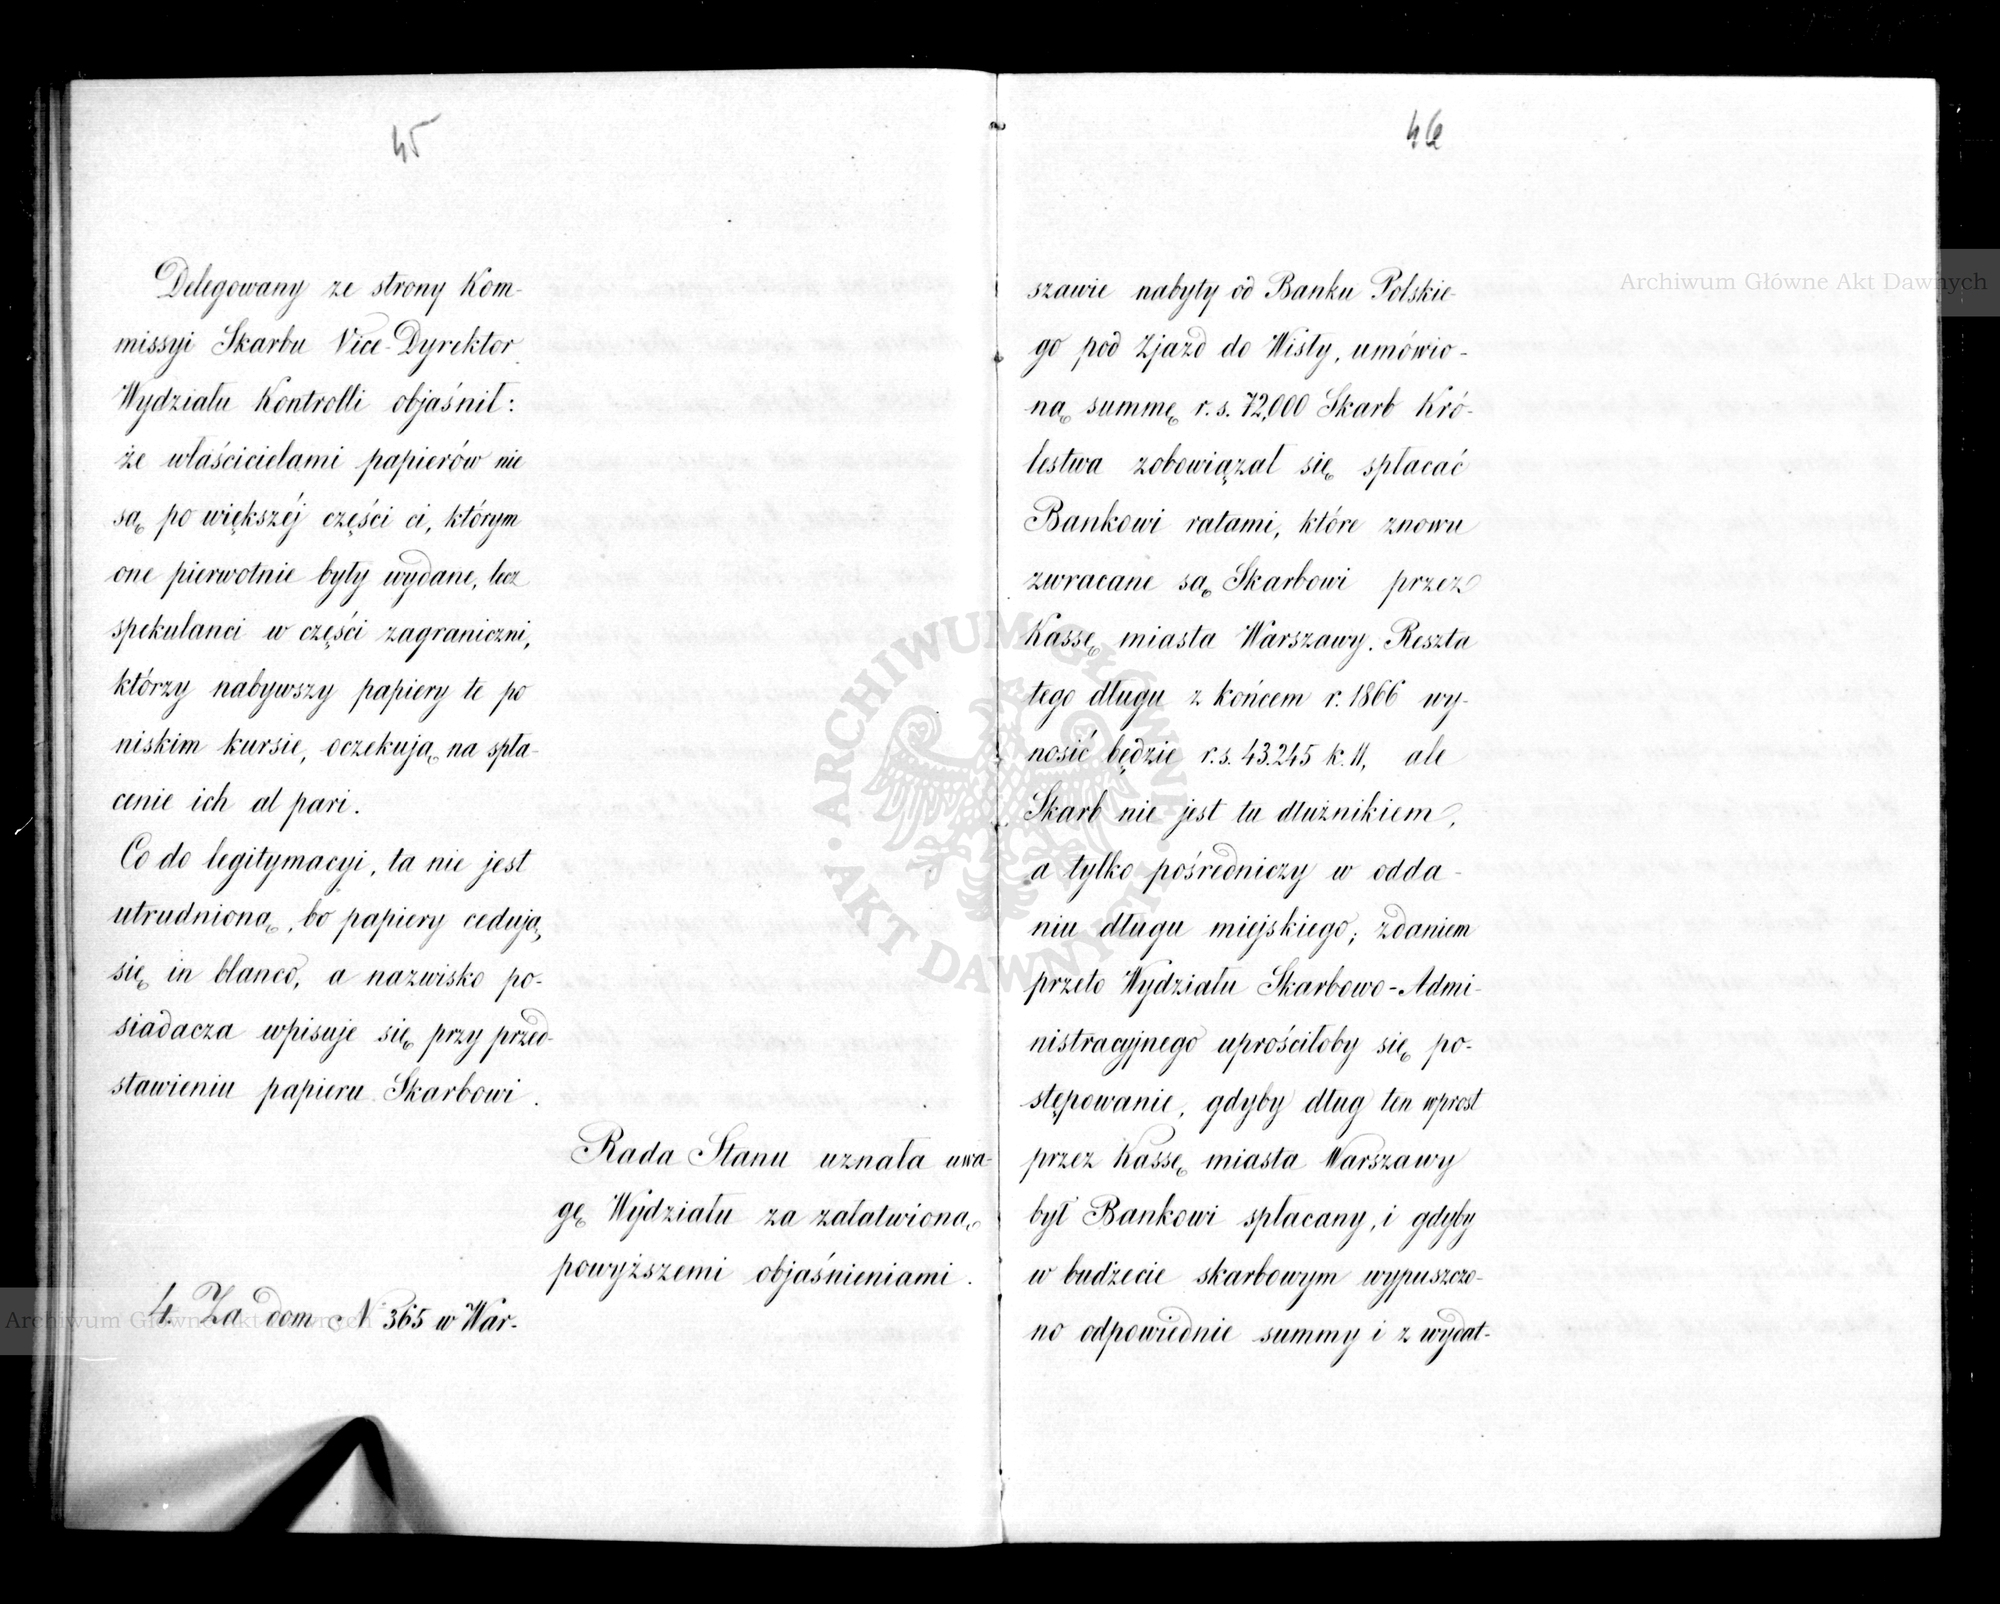 45
Delegowany ze strony Kom-
missyi Skarbu Vice-Dyrektor
Wydziału Kontrolli objaśnił:
że właścicielami papierów nie
są po większéj części ci, którym
one pierwotnie były wydane, lecz
spekulanci w części zagraniczni,
którzy nabywszy papiery te po
niskim kursie, oczekują na spła-
cenie ich al pari.
Co do legitymacyi, ta nie jest
utrudnioną, bo papiery cedują
się in blanco, a nazwisko po-
siadacza wpisuje się przy przed-
stawieniu papieru Skarbowi.
Rada Stanu uznała uwa-
gę Wydziału za załatwioną
powyższemi objaśnieniami.
4. Za dom N 365 w War-
46
szawie nabyty od Banku Polskie-
go pod Zjazd do Wisły, umówio-
ną summę r.s. 72,000 Skarb Kró-
lestwa zobowiązał się spłacać
Bankowi ratami, które znowu
zwracane są Skarbowi przez
Kassę miasta Warszawy. Reszta
tego długu z końcem r. 1866 wy-
nosić będzie r.s. 43.245 k. 11, ale
Skarb nie jest tu dłużnikiem,
a tylko pośredniczy w odda-
niu długu miejskiego; zdaniem
przeto Wydziału Skarbowo-Admi-
nistracyjnego uprościłoby się po-
stępowanie, gdyby dług ten wprost
przez Kassę miasta Warszawy
był Bankowi spłacany, i gdyby
w budżecie skarbowym wypuszczo-
no odpowiednie summy i z wydat-
Archiwum Główne Akt Dawnych
ARCHIWUM GŁÓWNE AKT DAWNYCH
Archiwum Główne Akt Dawnych